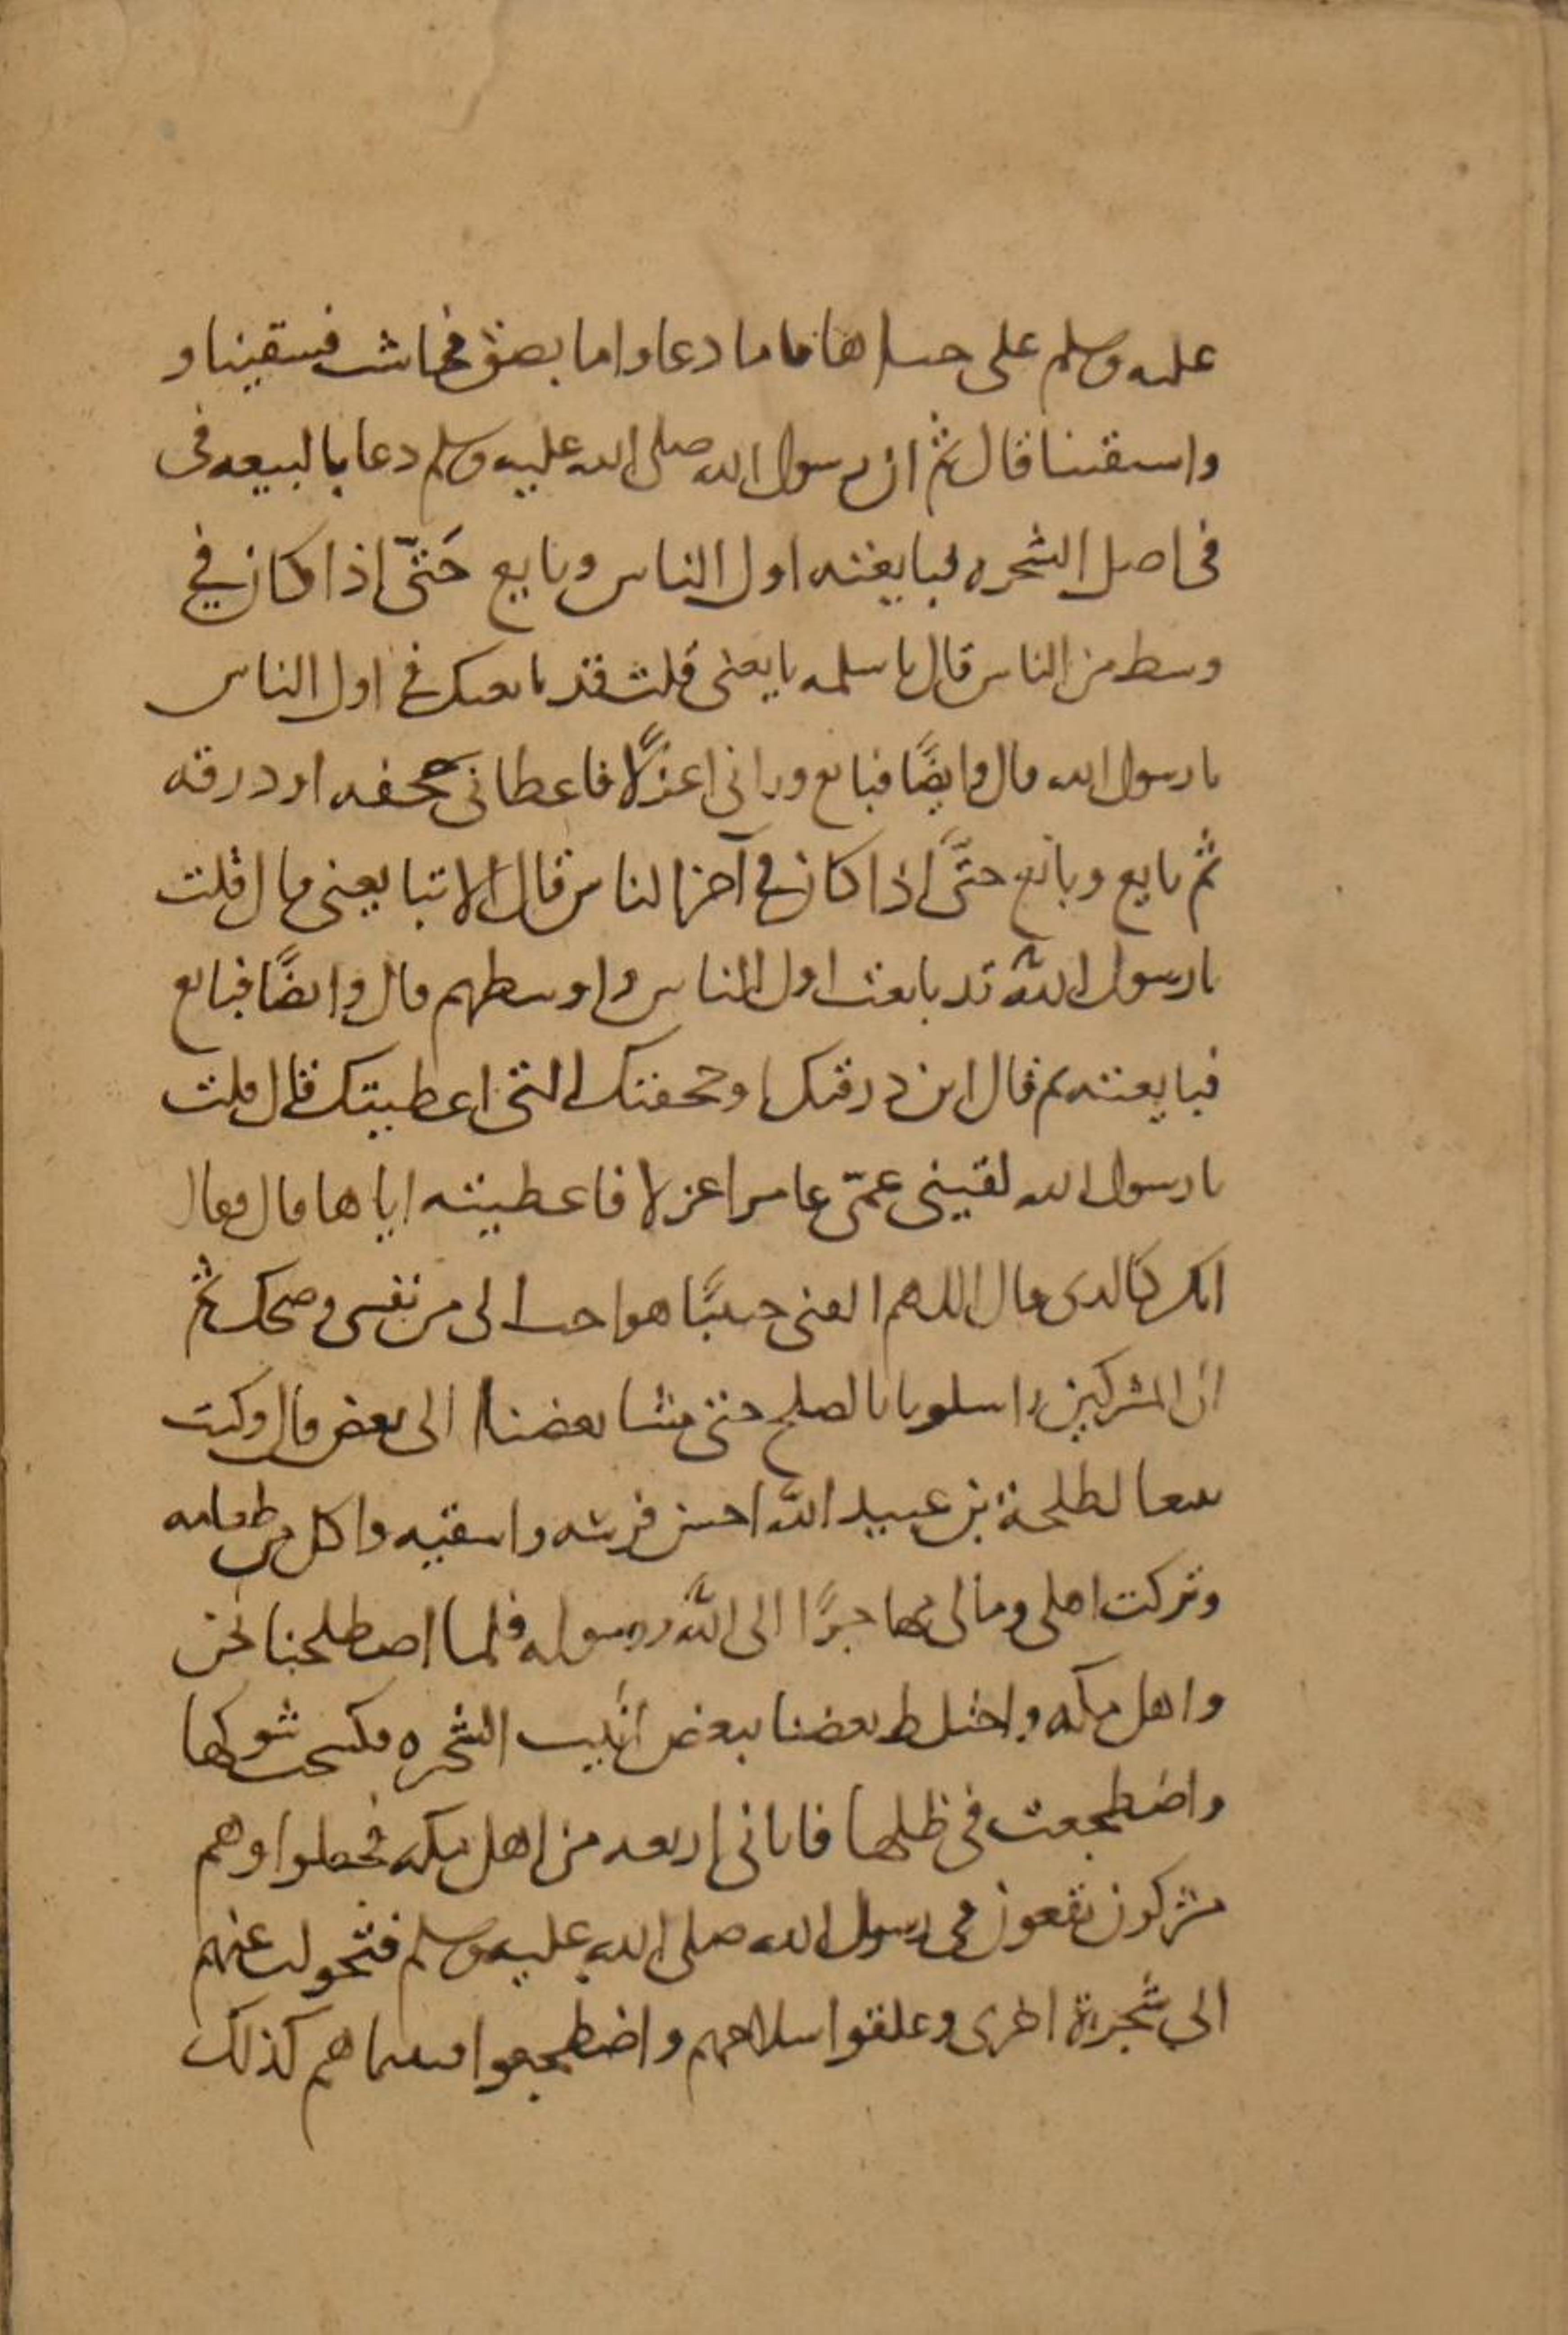 عليه وسلم على حباها فاما دعا واما بصق فجاشت فسقينا و
واستقينا قال ثم ان رسول الله صلى الله عليه وسلم دعا بالبيعه فى
فى اصل الشجره فبايعته اول الناس وبايع حَتّى اذا كان في
وسط من الناس قال يا سلمه بايعنى قلت قد بايعتك في اول الناس
يا رسول الله قال وايضًا فبايع ورانى اعزلًا فاعطانى جحفه او درقه
ثم بايع وبايع حتَّى اذا كان في آخر الناس قال الا تبايعنى قال قلت
يا رسول الله قد بايعت اول الناس واوسطهم قال وايضًا فبايع
فبايعته ثم قال اين درقتك او جحفتك التى اعطيتك قال قلت
يا رسول الله لقينى عمّى عامر اعزلا فاعطيته اياها قال فقال
انك كالذى قال اللهم ابغنى حبيبًا هو احب الى من نفسى وضحك ثم
ان المشركين راسلونا بالصلح حتى مشا بعضنا الى بعض قال وكنت
تبعا لطلحة بن عبيد الله احس فرسه واسقيه واكل من طعامه
وتركت اهلى ومالى مهاجرًا الى الله ورسوله فلما اصطلحنا نحن
واهل مكه واختلط بعضنا ببعض اتيت الشجره فكسحت شوكها
واضطجعت فى ظلها فاتانى اربعه من اهل مكه فجعلوا وهم
مشركون يقعون فى رسول الله صلى الله عليه وسلم فتحولت عنهم
الى شجرة اخرى وعلقوا سلاحهم واضطجعوا فبينما هم كذلك